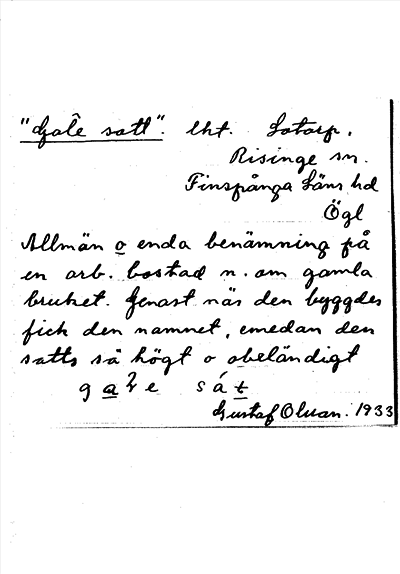 "Galê satt". lht. Lotorp.
Risinge sn.
Finspånga Läns hd
Ögl
Allmän o enda benämning på
en arb. bostad n. om gamla
bruket. Genast när den byggdes
fick den namnet, emedan den
satts så högt o obeländigt
gaɫe sát
Gustaf Olsson. 1933